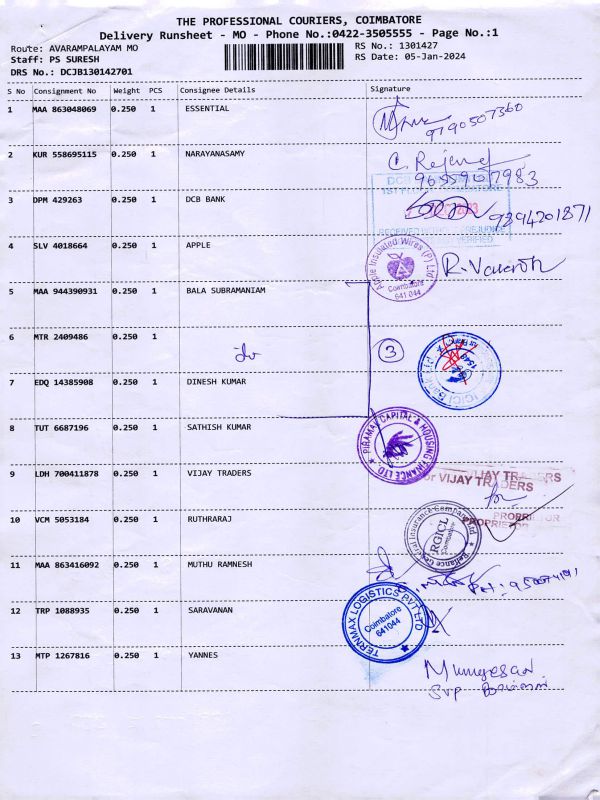 THE PROFESSIONAL COURIERS, COIMBATORE
Delivery Runsheet - MO - Phone No.:0422-3505555 - Page No.:1
Route: AVARAMPALAYAM MO
RS No.: 1301427
Staff: PS SURESH
RS Date: 05-Jan-2024
DRS No.: DCJB130142701
S No Consignment No Weight PCS Consignee Details Signature
1 MAA 863048069 0.250 1 ESSENTIAL
9790507360
2 KUR 558695115 0.250 1 NARAYANASAMY
9655907983
3 DPM 429263 0.250 1 DCB BANK
9894201871
4 SLV 4018664 0.250 1 APPLE
Apple Insulated Wires (P) Ltd
Coimbatore
641 044
5 MAA 944390931 0.250 1 BALA SUBRAMANIAM
6 MTR 2409486 0.250 1
3
7 EDQ 14385908 0.250 1 DINESH KUMAR
8 TUT 6687196 0.250 1 SATHISH KUMAR
PIRAMAL CAPITAL & HOUSING FINANCE LTD.
9 LDH 700411878 0.250 1 VIJAY TRADERS
VIJAY TRADERS
For VIJAY TRADERS
PROPRIETOR
PROPRIETOR
10 VCM 5053184 0.250 1 RUTHRARAJ
Reliance General Insurance Company Ltd
RGICL
Coimbatore
11 MAA 863416092 0.250 1 MUTHU RAMNESH
12 TRP 1088935 0.250 1 SARAVANAN
TERNMAX LOGISTICS PVT LTD
Coimbatore
641044
13 MTP 1267816 0.250 1 YANNES
Murugesan